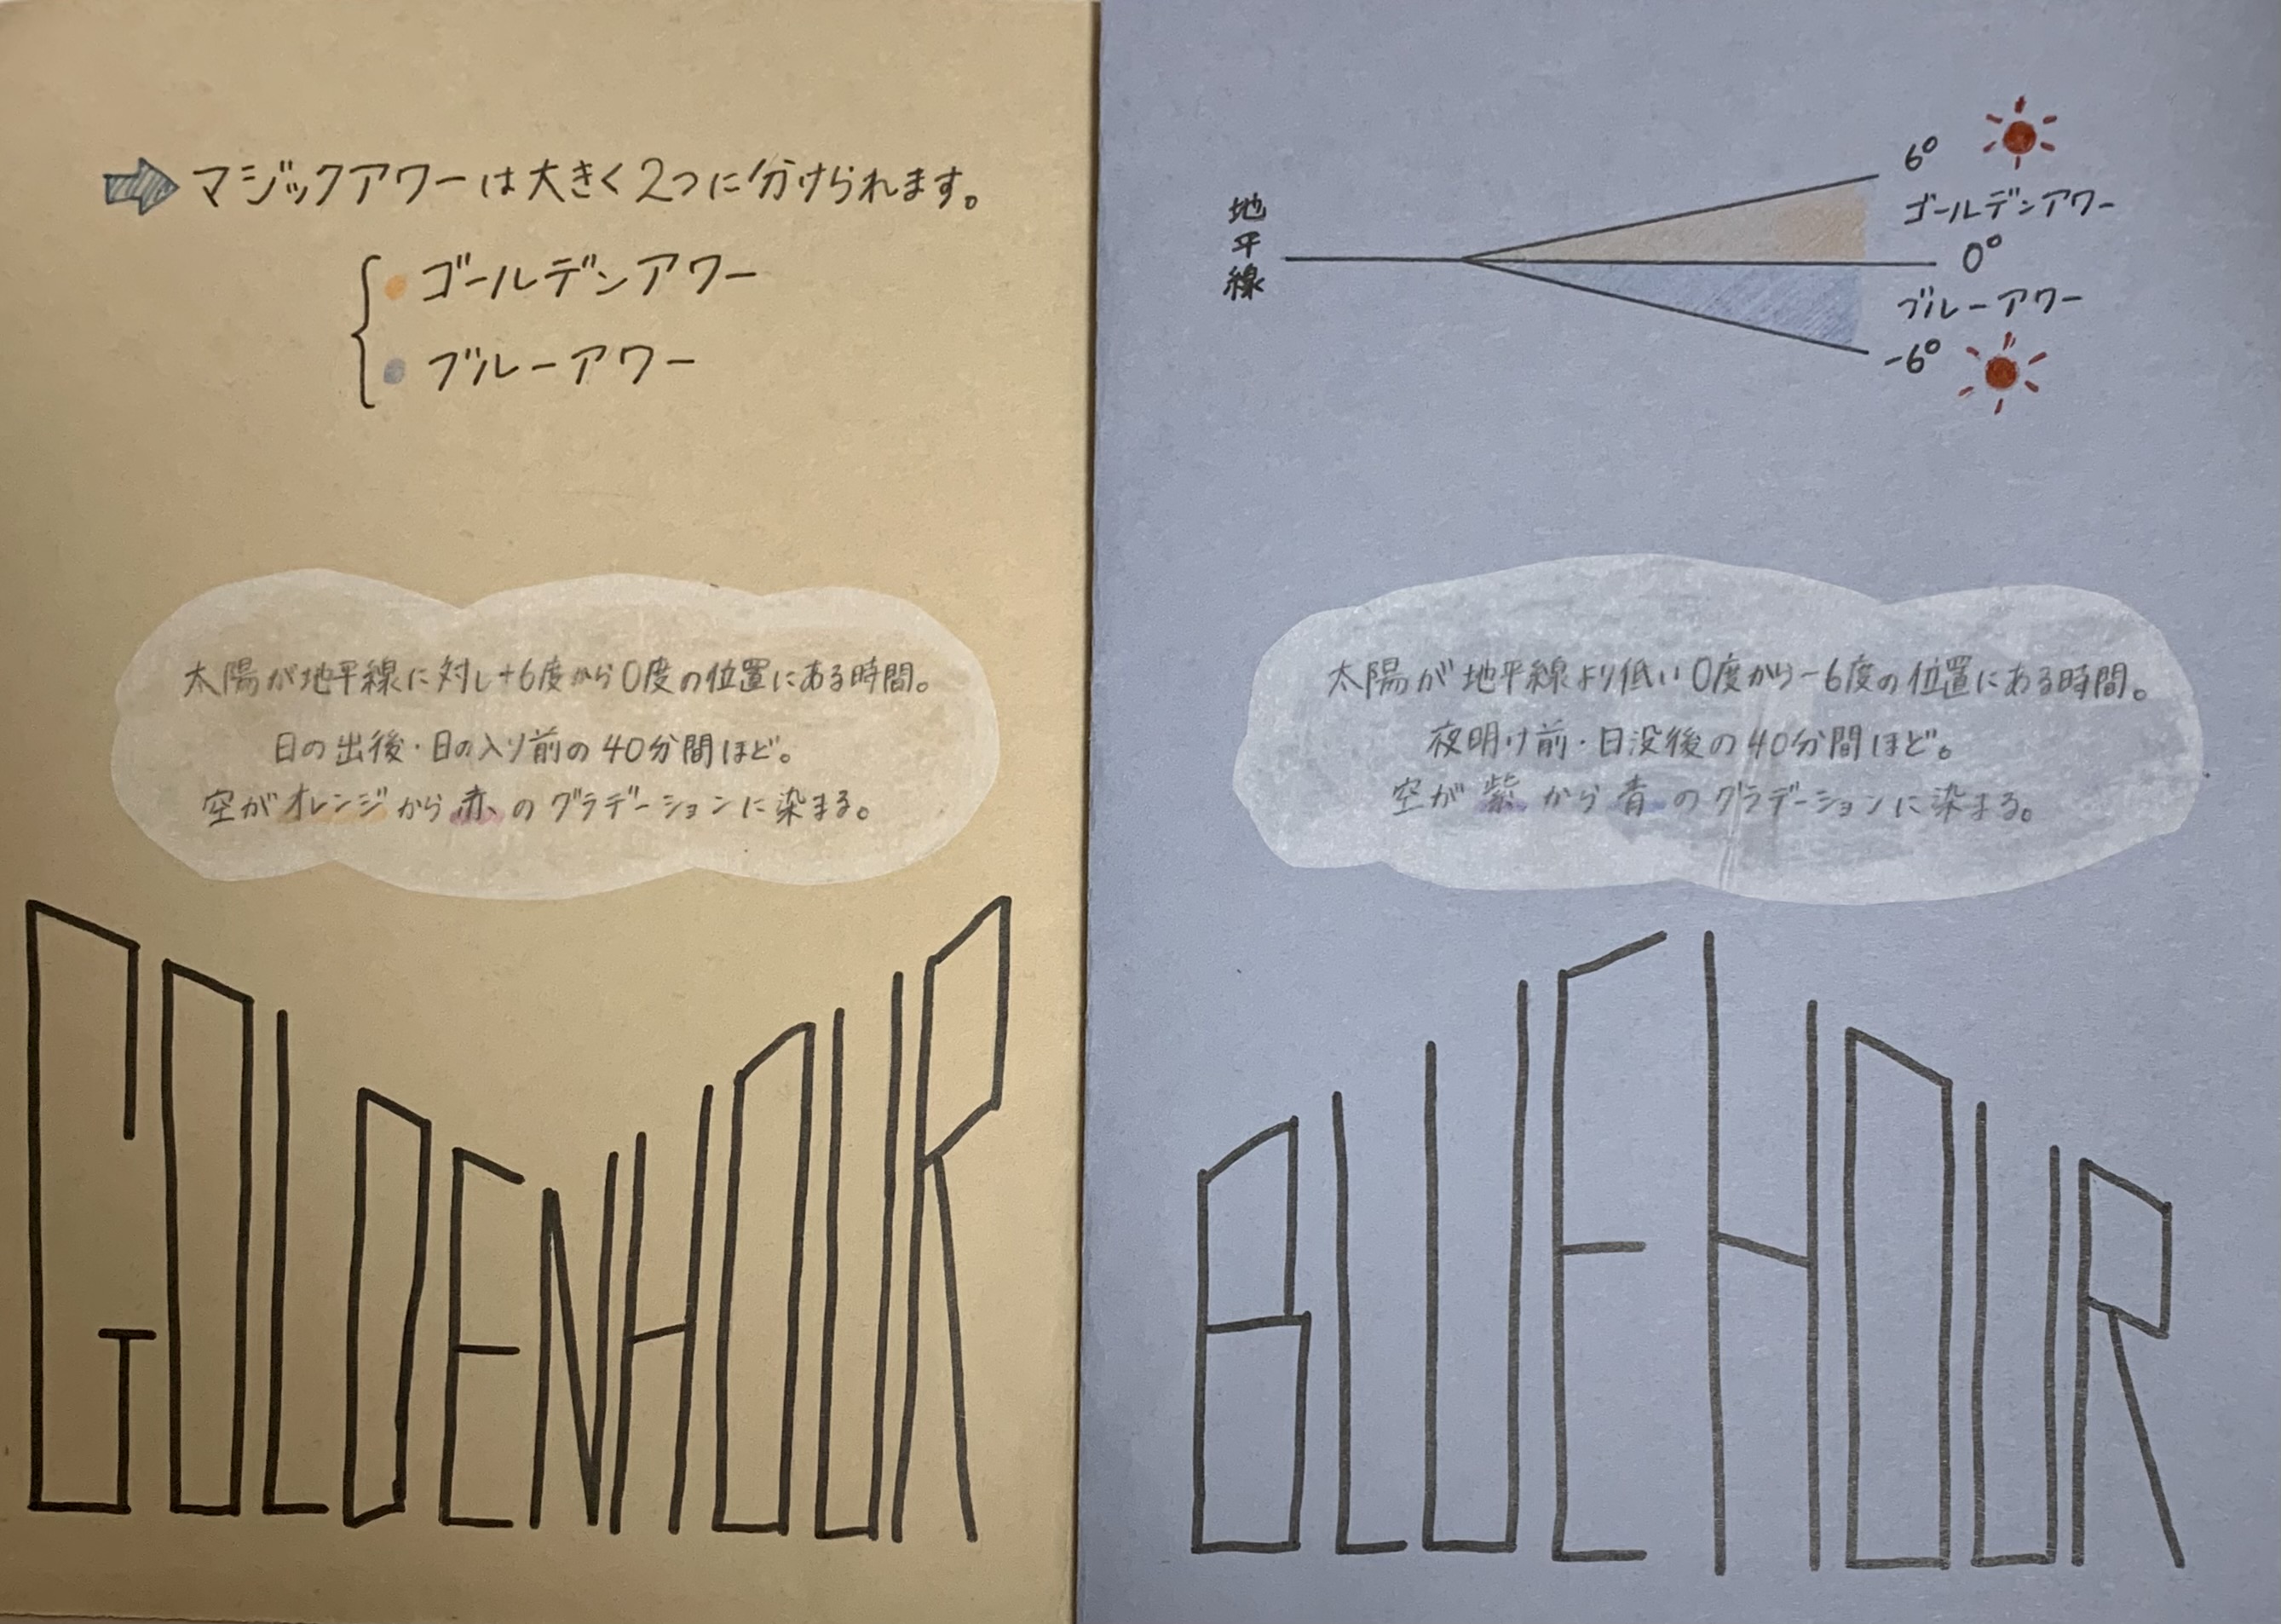 マジックアワーは大きく2つに分けられます。
ゴールデンアワー
ブルーアワー
太陽が地平線に対し+6度から0度の位置にある時間。
日の出後・日の入り前の40分間ほど。
空がオレンジから赤のグラデーションに染まる。
GOLDENHOUR
地平線
6°
ゴールデンアワー
0°
ブルーアワー
-6°
太陽が地平線より低い0度から-6度の位置にある時間。
夜明け前・日没後の40分間ほど。
空が紫から青のグラデーションに染まる。
BLUEHOUR